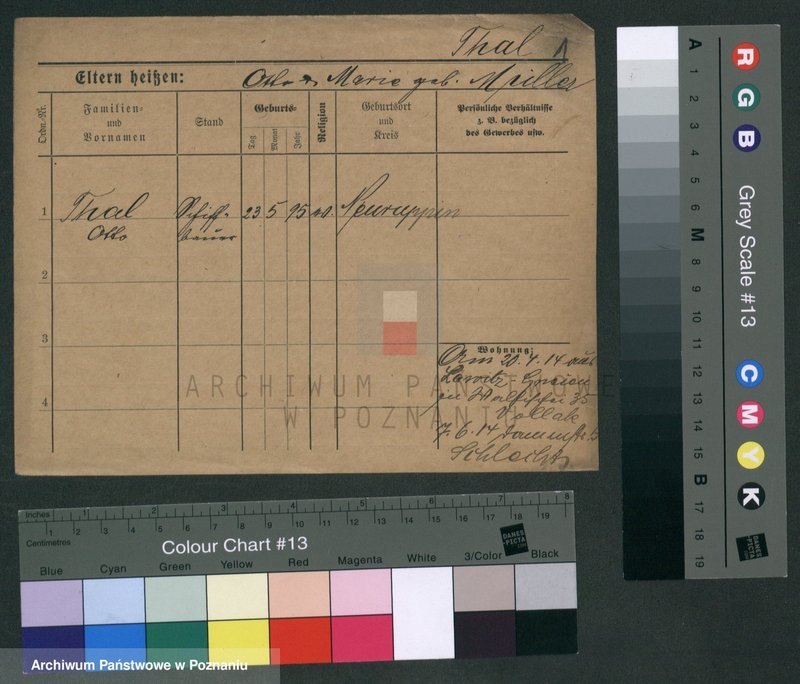 Thal
Eltern heißen: Otto u Marie geb. Müller
Ordn.-Nr.
Familien- und Vornamen
Stand
Geburts-
Tag
Monat
Jahr
Religion
Geburtsort und Kreis
Persönliche Verhältnisse z. B. bezüglich des Gewerbes usw.
1
Thal
Otto
Schiff-
bauer
23
5
95
ev.
Neuruppin
2
3
4
Wohnung:
Am 20.4.14 aus
in 35
7.6.14
ARCHIWUM PAŃSTWOWE
W POZNANIU
Inches
1 2 3 4 5 6 7 8
Centimetres
1 2 3 4 5 6 7 8 9 10 11 12 13 14 15 16 17 18 19
Colour Chart #13
Blue
Cyan
Green
Yellow
Red
Magenta
White
3/Color
Black
DANES
-PICTA
.COM
Archiwum Państwowe w Poznaniu
R
G
B
Grey Scale #13
C
M
Y
K
DANES
-PICTA
.COM
A
1
2
3
4
5
6
M
8
9
10
11
12
13
14
15
B
17
18
19